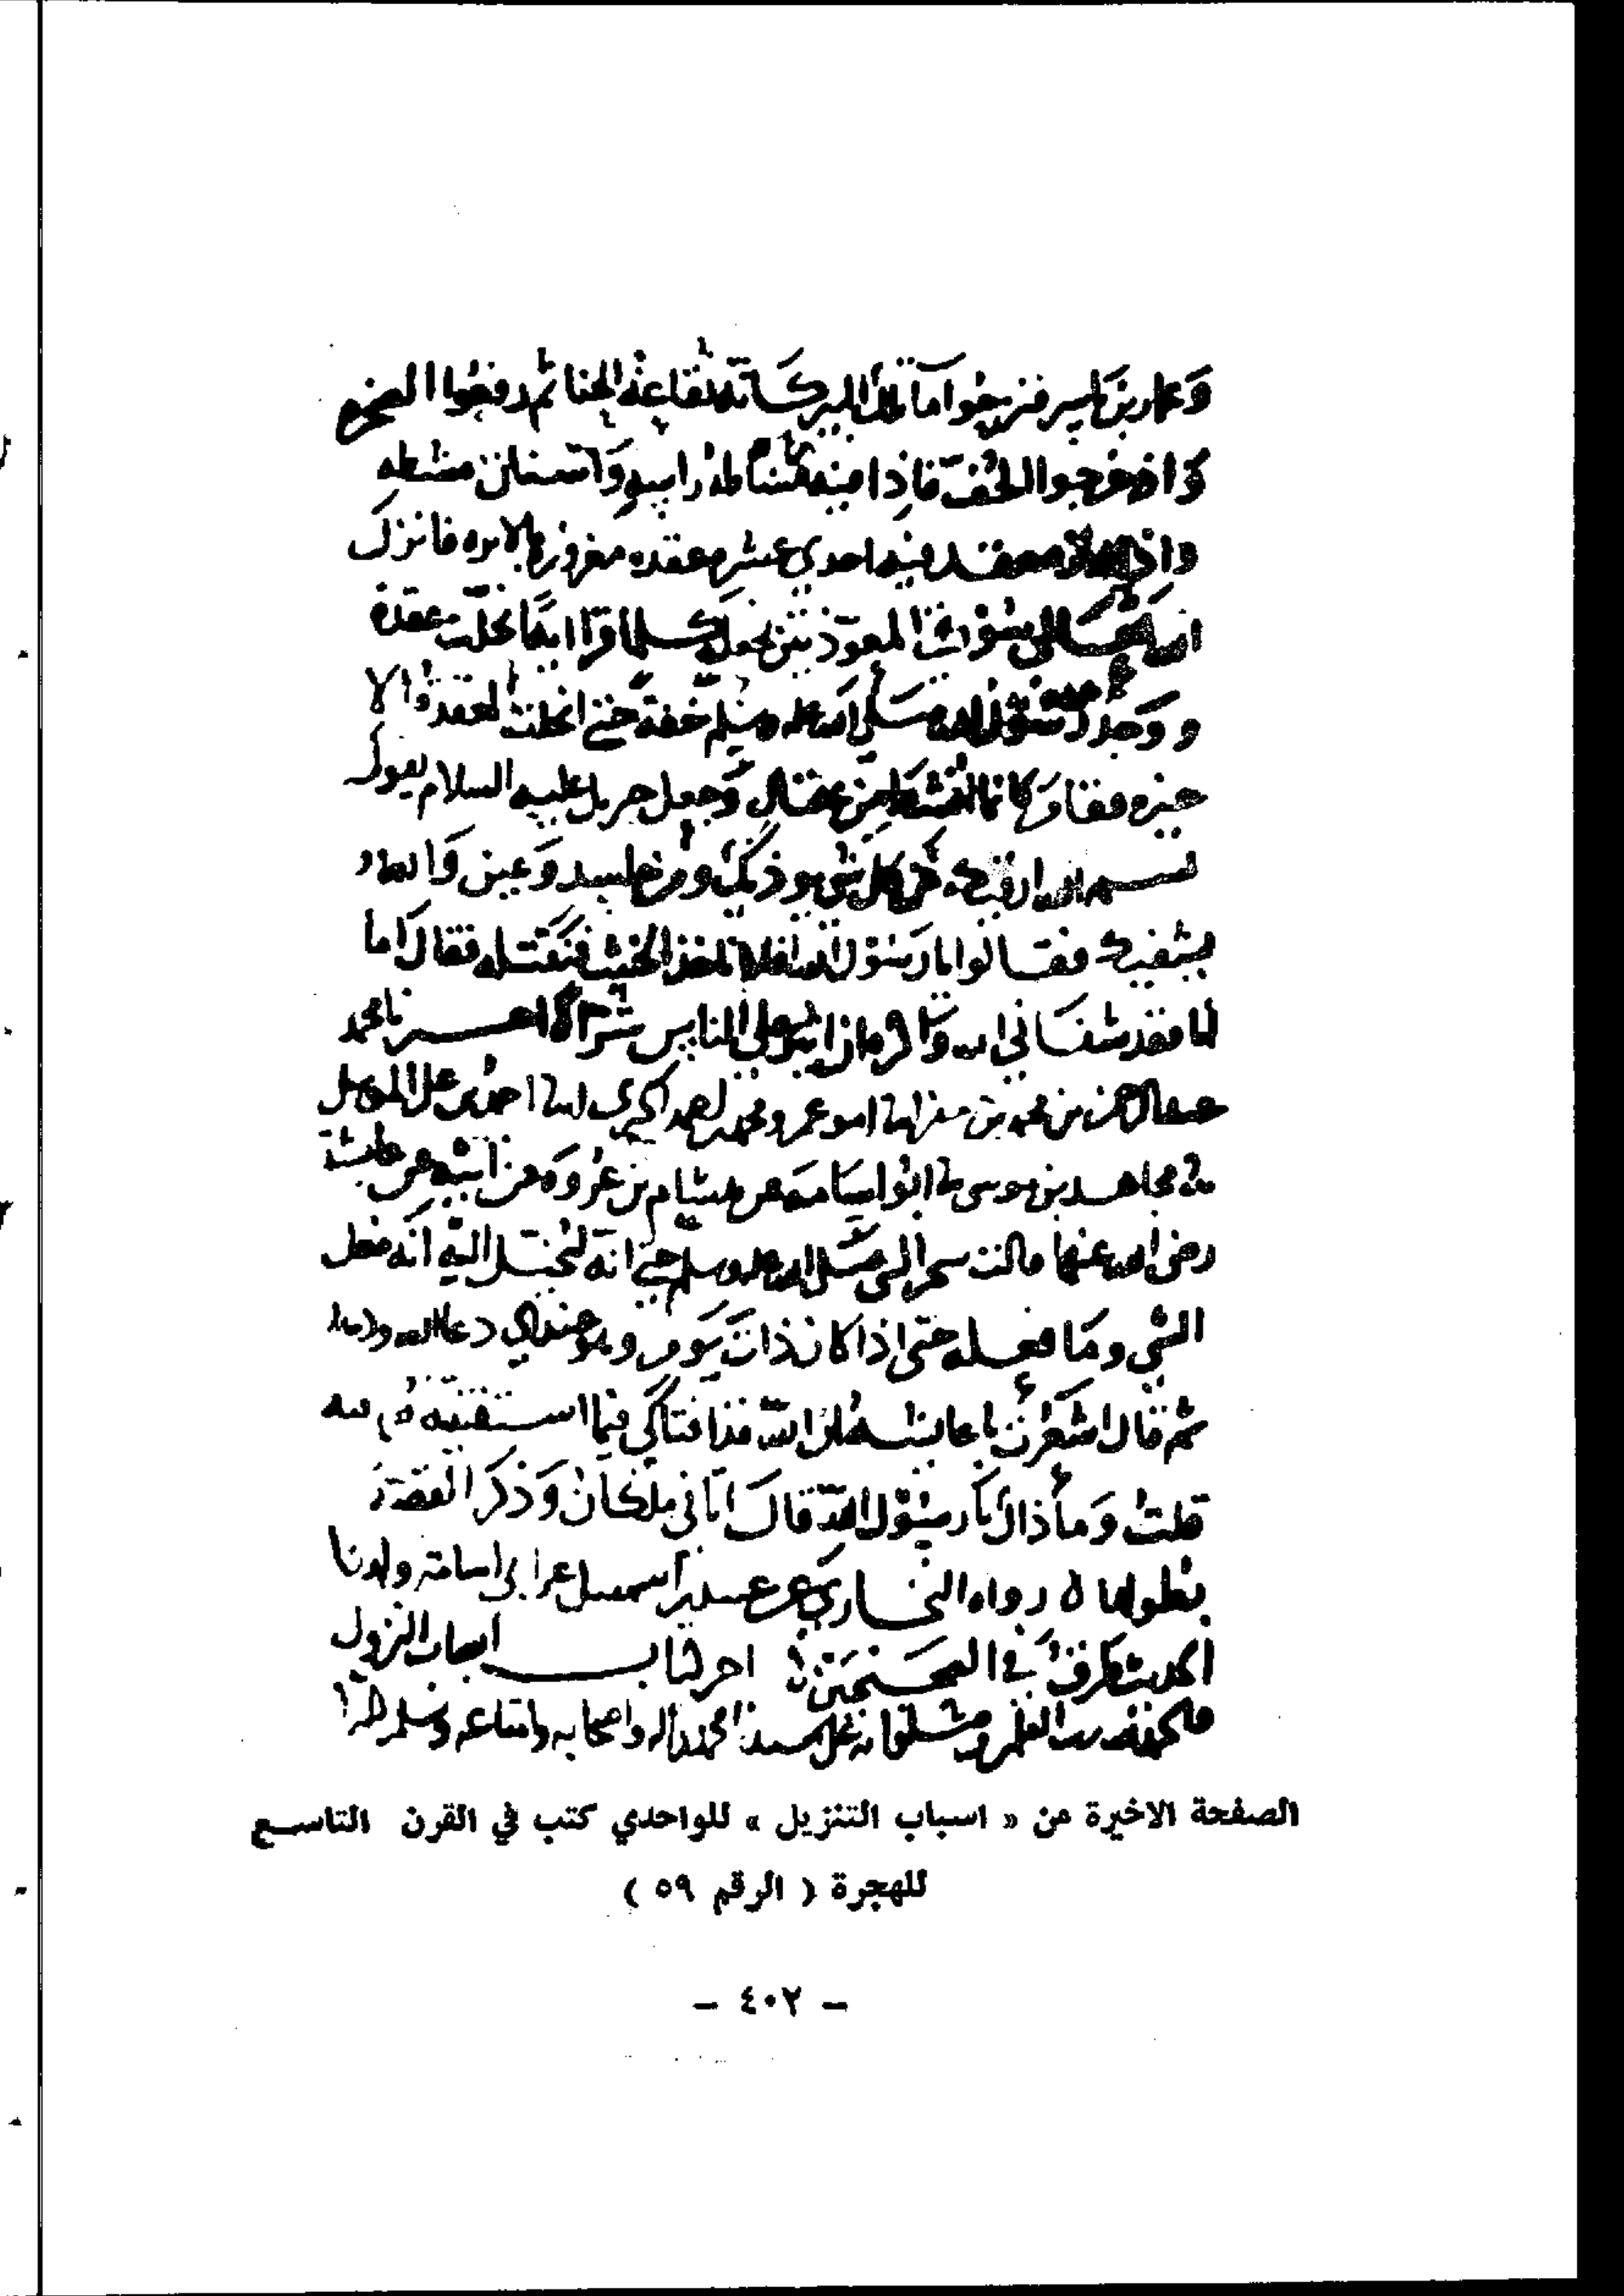 وعمار بن ياسر فنزحوا ماء تلك البير كانه نقاعة الحنا ثم رفعوا الصخرة
واخرجوا الجف فاذا فيه مشاطة راسه واسنان من مشطه
واذا وتر معقد فيه احدى عشر عقدة مغروزة بالابره فانزل
الله تعالى سورتي المعوذتين فجعل كلما قرا اية انحلت عقدة
ووجد رسول الله صلى الله عليه وسلم خفة حتى انحلت العقدة الا
خيرة فقام كانما انشط من عقال وجعل جبريل عليه السلام يقول
بسم الله ارقيك من كل شي يوذيك ومن حاسد وعين والله
يشفيك فقالوا يا رسول الله افلا ناخذ الخبيث فنقتله فقال اما
انا فقد شفاني الله واكره ان اثير على الناس شرا اخبرنا محمد
بن عبد الرحمن بن محمد بن جعفر انا ابو عمرو محمد بن احمد الحيري انا احمد بن علي الموصلي
نا مجاهد بن موسى نا ابو اسامة عن هشام بن عروة عن ابيه عن عايشة
رضي الله عنها قالت سحر النبي صلى الله عليه وسلم حتى انه ليخيل اليه انه فعل
الشي وما فعله حتى اذا كان ذات يوم وهو عندي دعا الله ودعا
ثم قال اشعرت يا عايشة ان الله قد افتاني فيما استفتيته فيه
قلت وما ذاك يا رسول الله قال اتاني ملكان وذكر القصة
بطولها رواه البخاري عن عبيد بن اسمعيل عن ابي اسامة ولهذا
الحديث طرق في الصحيحين اخر كتاب اسباب النزول
وصلواته على سيدنا محمد واله واصحابه واتباعه وسلم
الصفحة الاخيرة من « اسباب التنزيل » للواحدي كتب في القرن التاسع
للهجرة ( الرقم ٥٩ )
– ٤٠٢ –